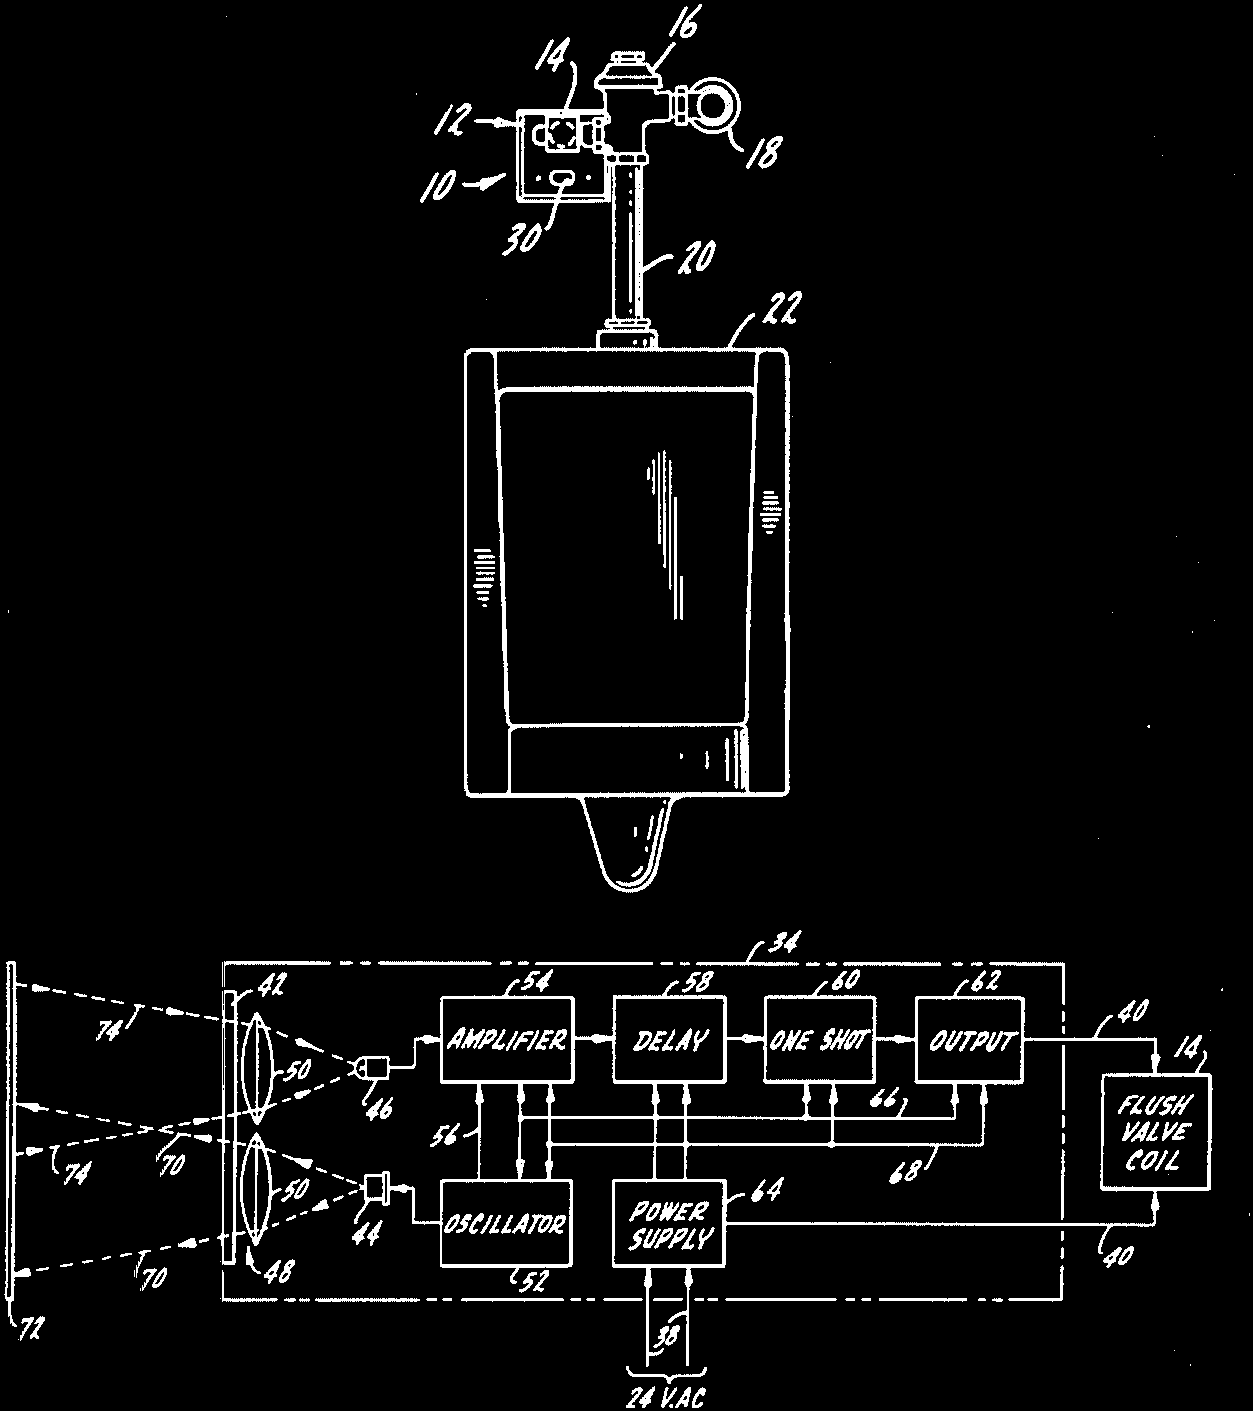 16
14
12
18
10
30
20
22
34
42
54
58
60
62
74
40
AMPLIFIER
DELAY
ONE SHOT
OUTPUT
14
50
46
66
FLUSH
VALVE
COIL
56
74
70
68
50
44
64
OSCILLATOR
POWER
SUPPLY
70
48
52
40
72
38
24 V.AC